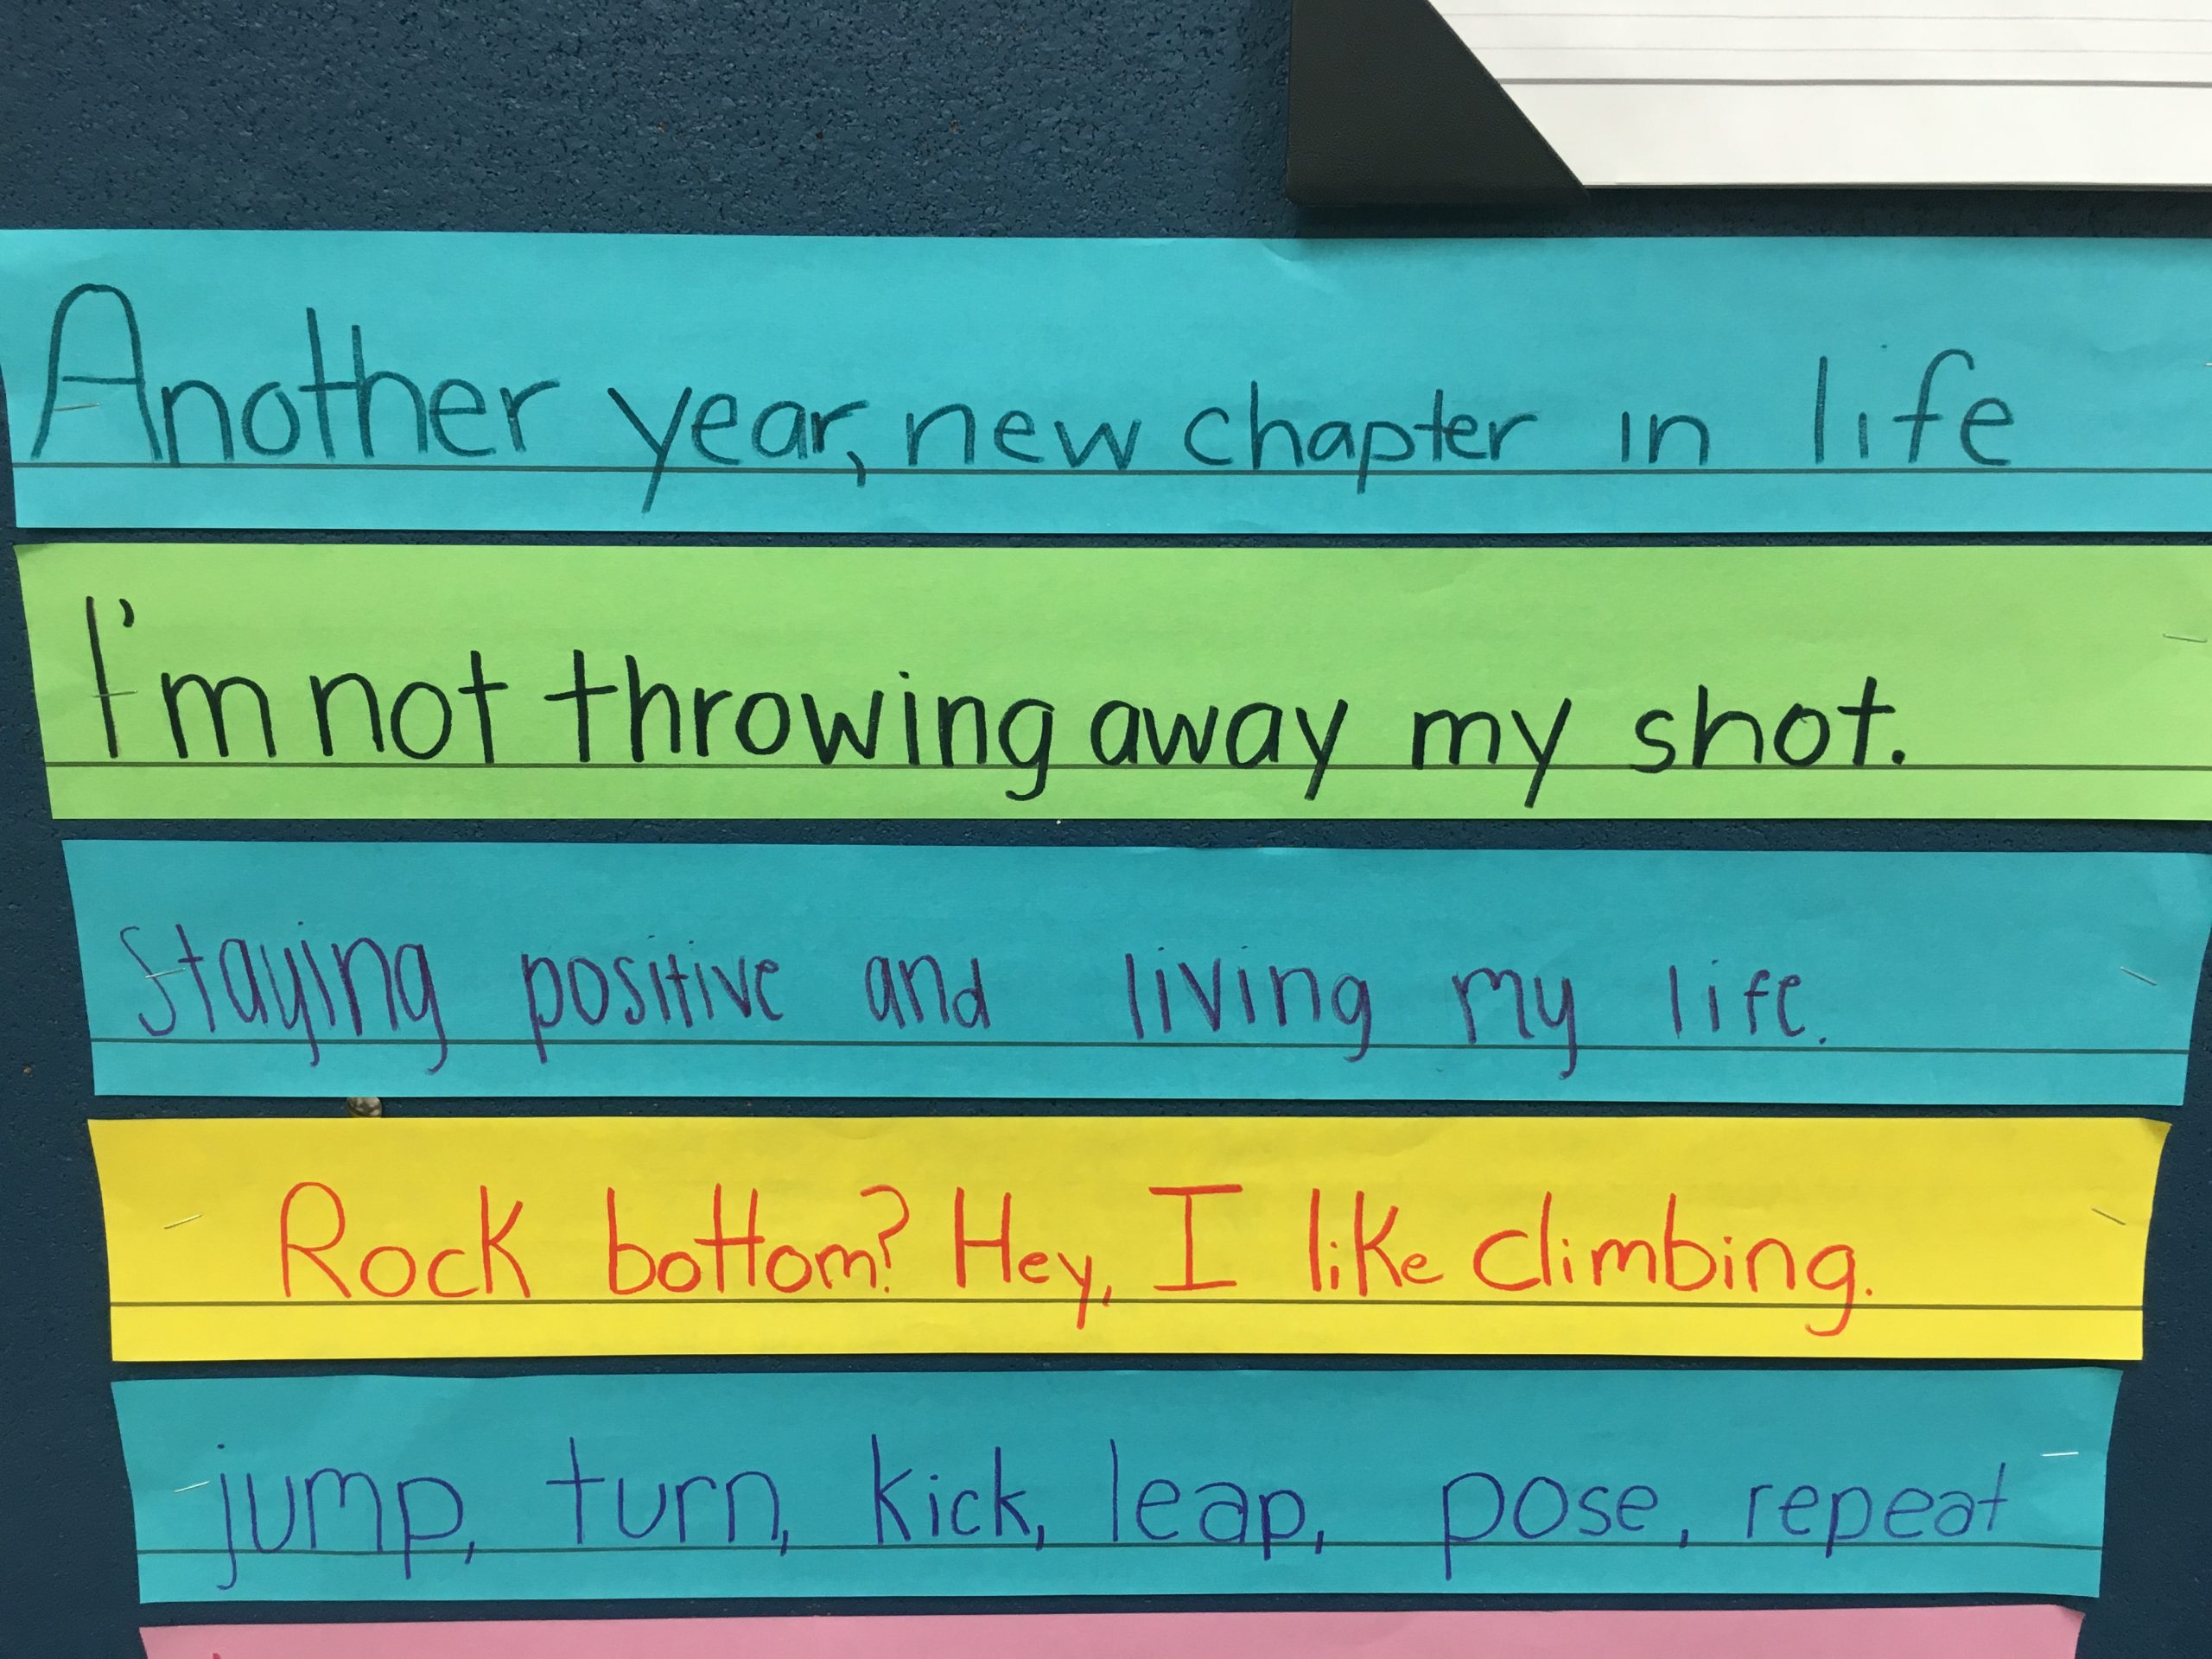 Another year, new chapter in life
I'm not throwing away my shot.
Staying positive and living my life.
Rock bottom? Hey, I like climbing.
jump, turn, kick, leap, pose, repeat